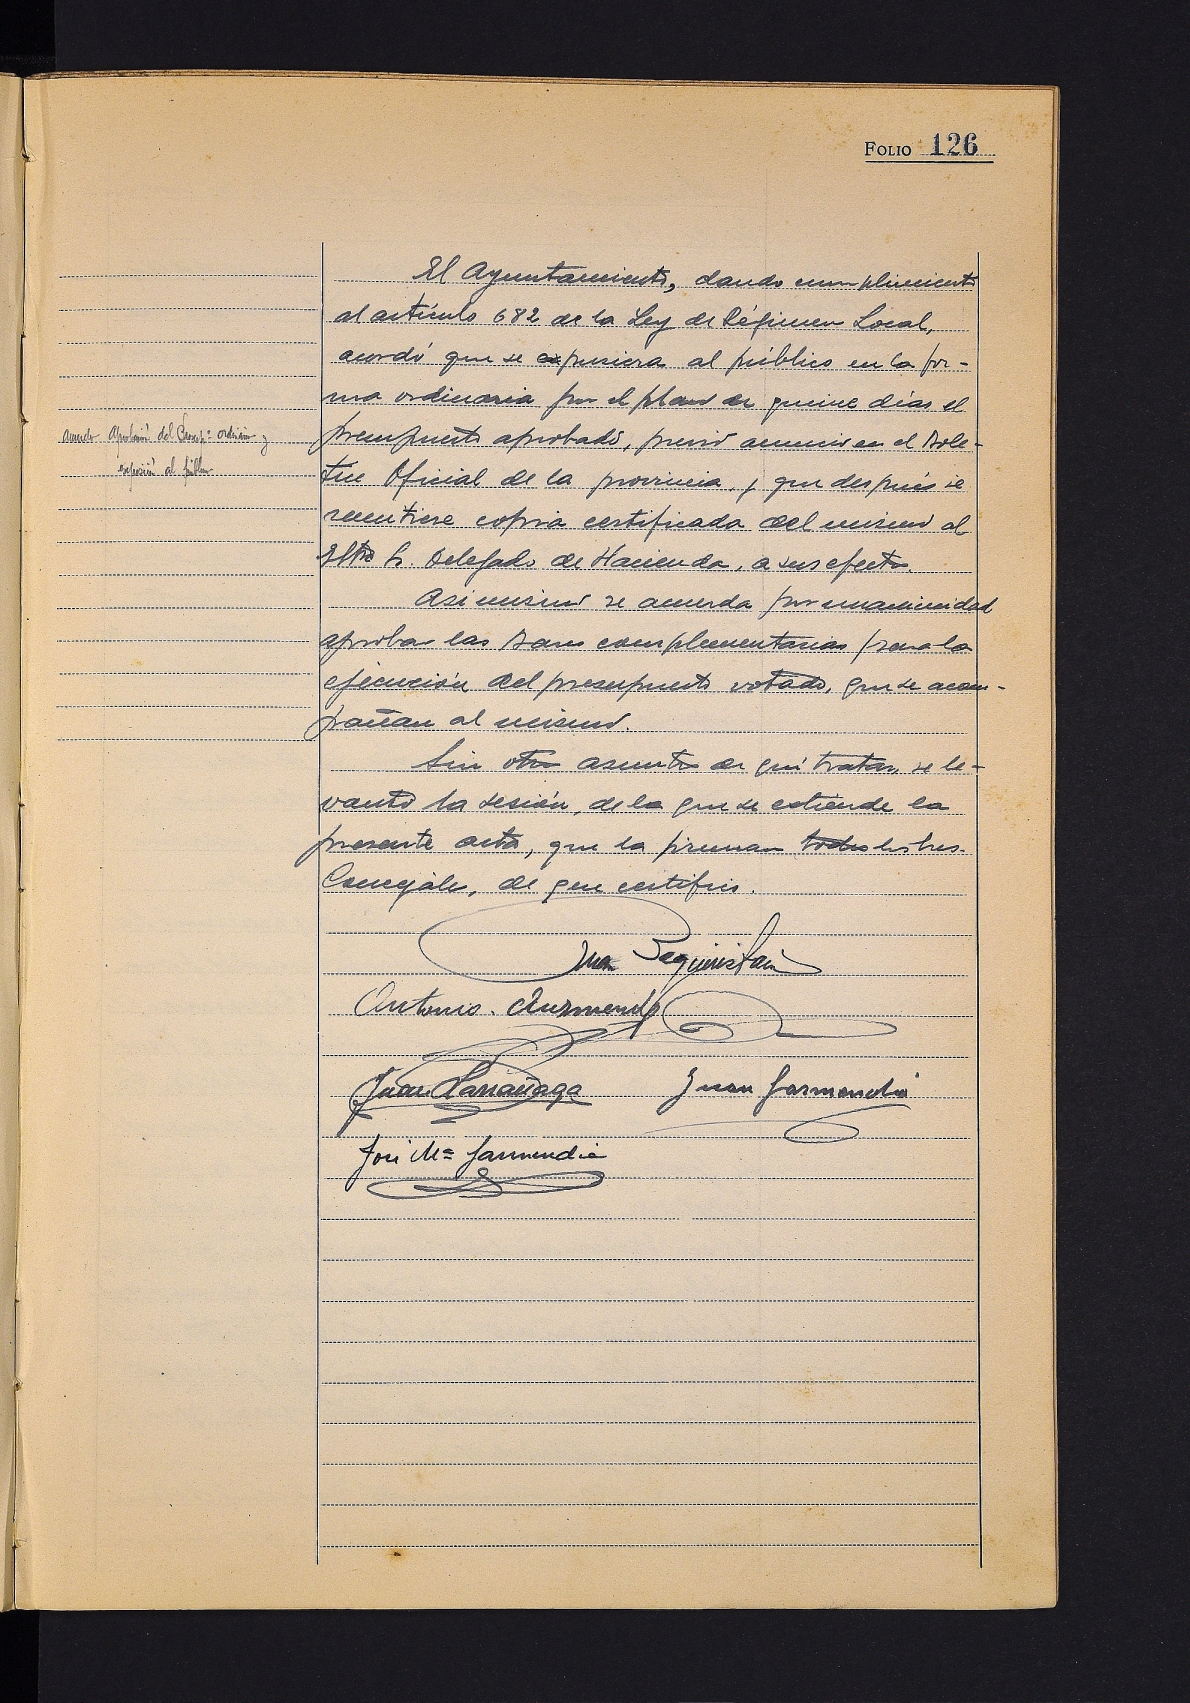 FOLIO 126
El Ayuntamiento, dando cumplimiento
al artículo 682 de la Ley de Régimen Local,
acordó que se expusiera al público en la for-
ma ordinaria por el plazo de quince días el
presupuesto aprobado, previo anuncio en el Bole-
tín Oficial de la provincia, y que después se
remitiese copia certificada del mismo al
Iltro Sr. Delegado de Hacienda, a sus efectos.
Asi mismo se acuerda por unanimidad
aprobar las Bases complementarias para la
ejecución del presupuesto votado, que se acom-
pañan al mismo.
Sin otro asunto de qué tratar, se le-
vantó la sesión, de la que se extiende la
presente acta, que la firman todos los tres.
Concejales, de que certifico.
Aprobación del Presupº ordinario y
exposición al público
Juan Beguiristain
Antonio Aurmendi
Juan Larrañaga Juan Garmendia
José Mª Garmendia